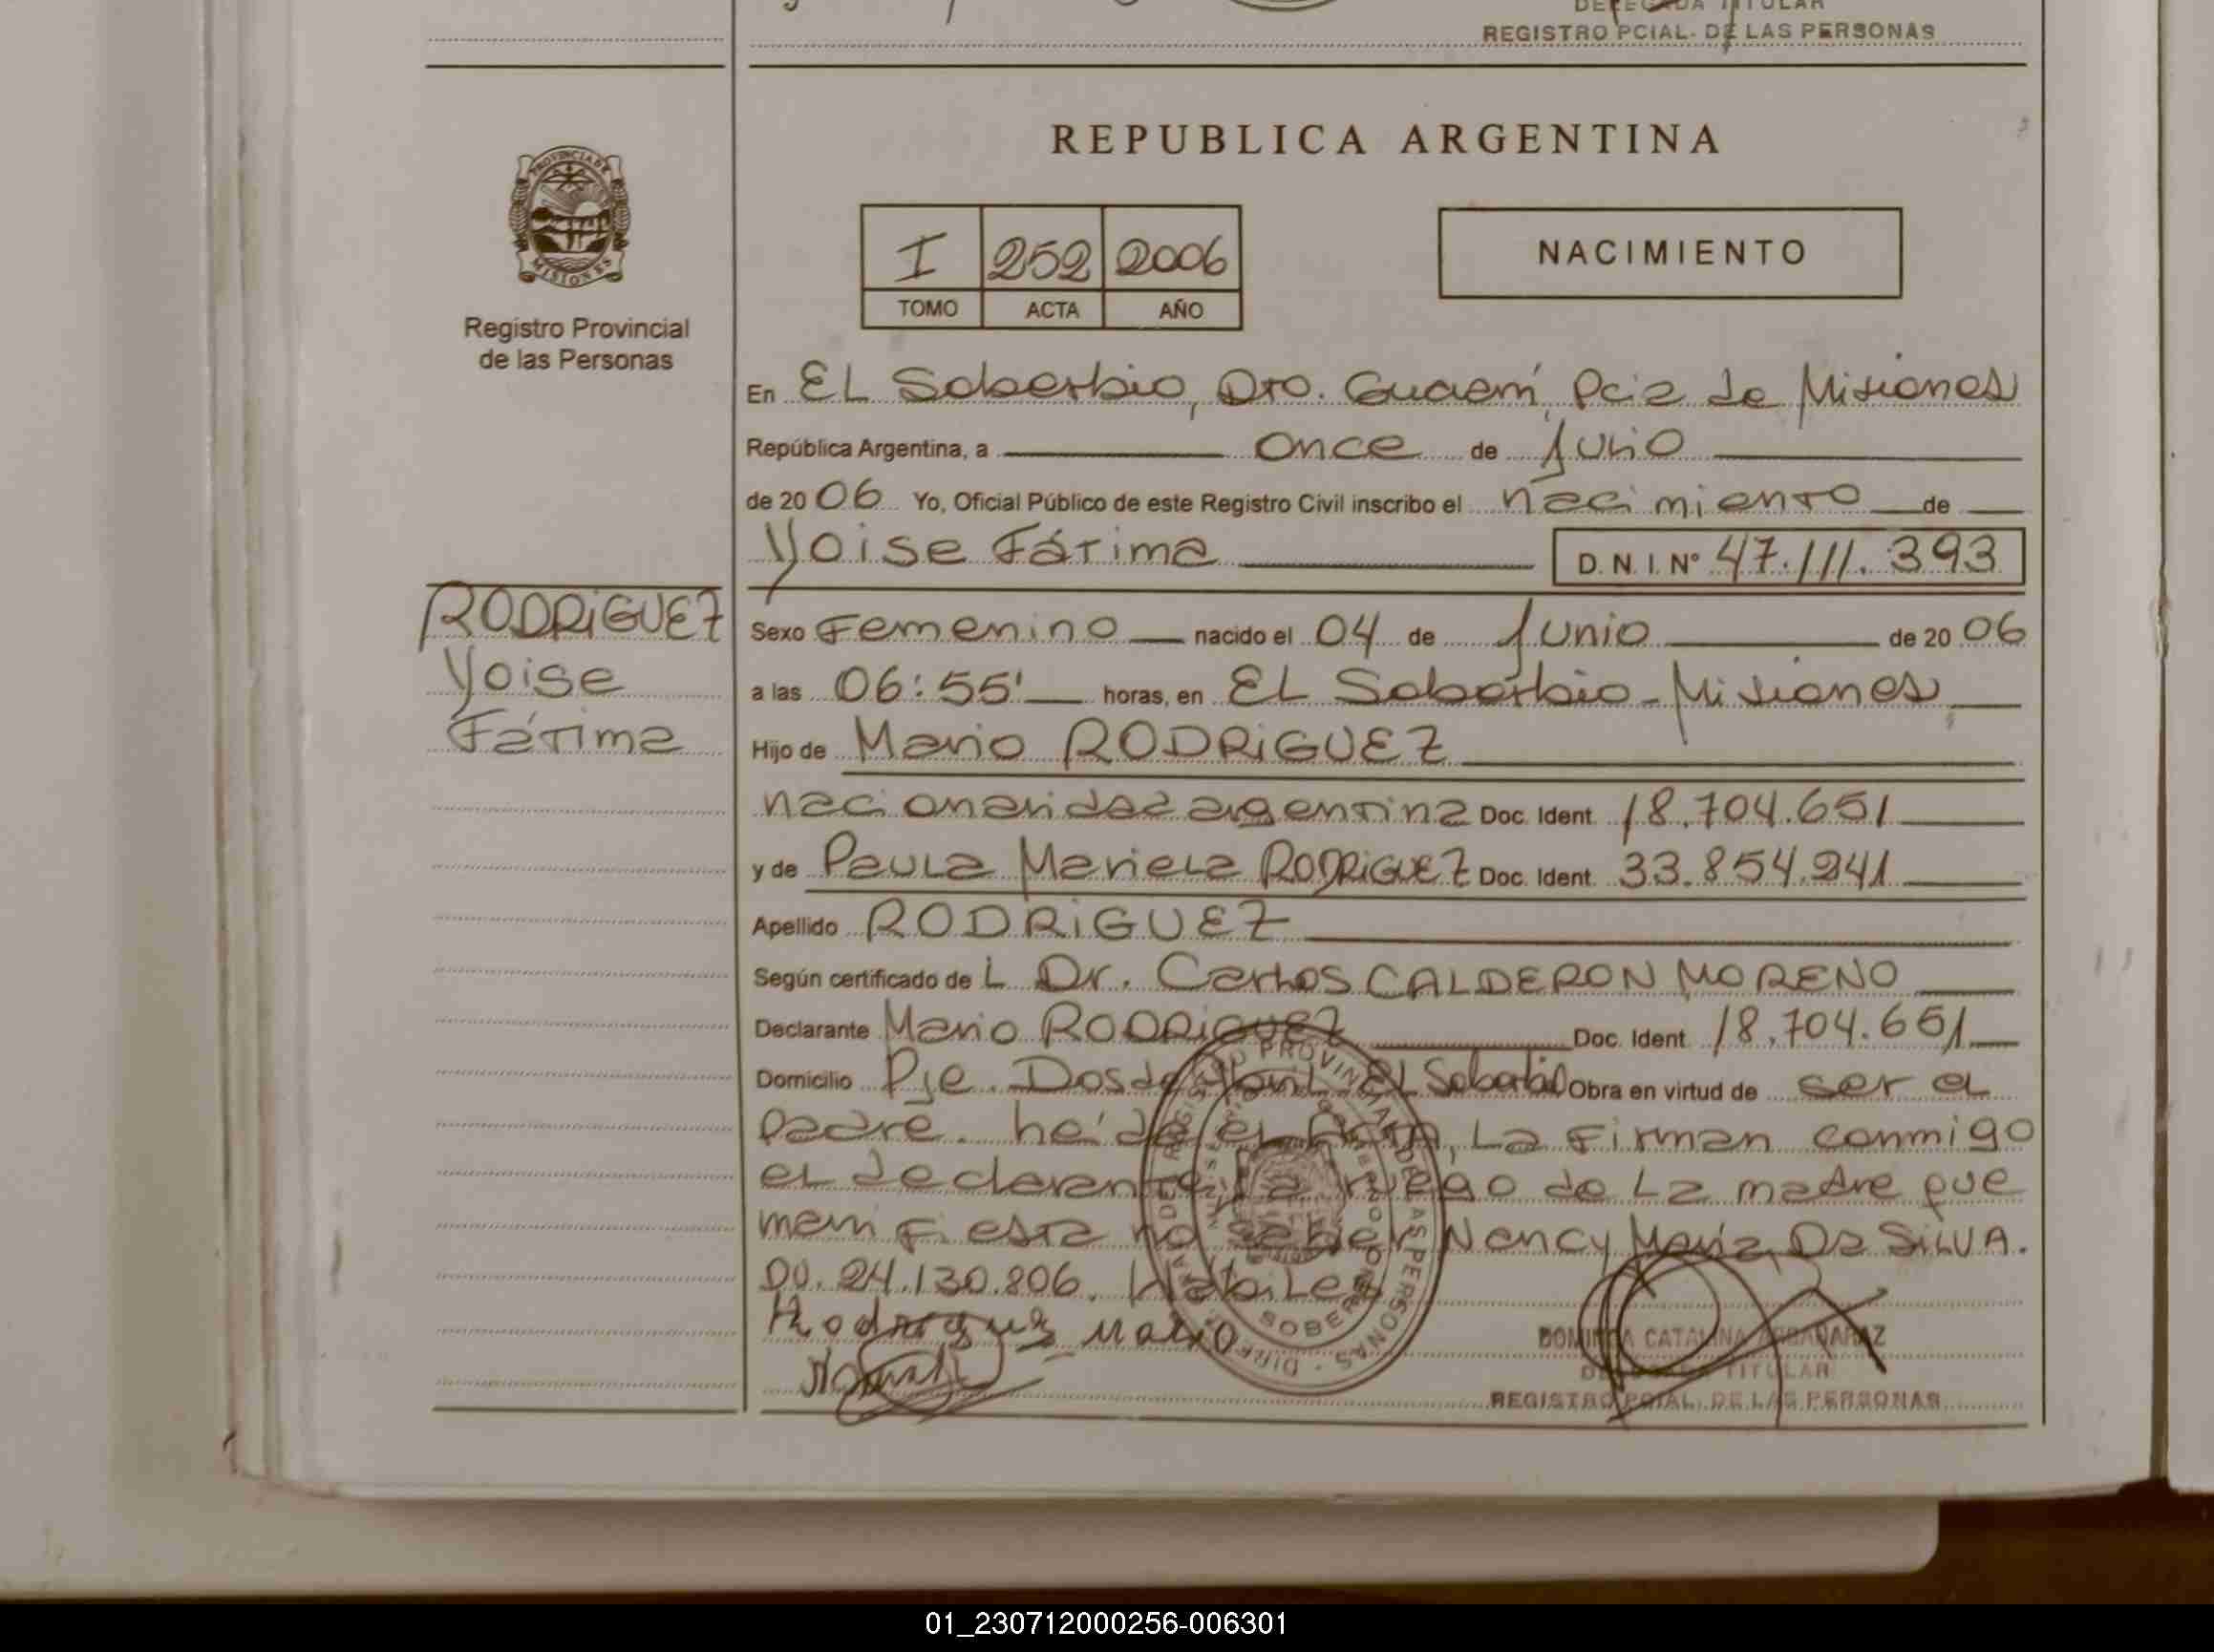 DELEGADA TITULAR
REGISTRO PCIAL. DE LAS PERSONAS
REPUBLICA ARGENTINA
PROVINCIA DE
MISIONES
Registro Provincial
de las Personas
I 252 2006
TOMO ACTA AÑO
NACIMIENTO
En EL Soberbio, Dto. Guaraní, Pcia de Misiones
República Argentina, a once de Julio
de 2006 Yo, Oficial Público de este Registro Civil inscribo el nacimiento de
Yoise Fátima D. N. I. Nº 47.111.393
RODRiGUEZ
Yoise
Fátima
Sexo Femenino nacido el 04 de Junio de 2006
a las 06:55' horas, en EL Soberbio-Misiones
Hijo de Mario RODRiGUEZ
nacionalidad argentina Doc. Ident. 18.704.651
y de Paula Mariela RODRiGUEZ Doc. Ident. 33.854.241
Apellido RODRiGUEZ
Según certificado de L Dr. Carlos CALDERON MORENO
Declarante Mario RODRiGUEZ Doc. Ident. 18.704.651
Domicilio Pje. Dos de Abril EL Soberbio Obra en virtud de ser el
padre. heída el Acta, La Firman conmigo
el declarante, a ruego de La madre que
manifiesta no saber Nancy María Da SiLVA.
DU. 24.130.806. Habiles
Rodriguez Mario
DOMINGA CATALINA
DELEGADA TITULAR
REGISTRO PCIAL. DE LAS PERSONAS
01_230712000256-006301